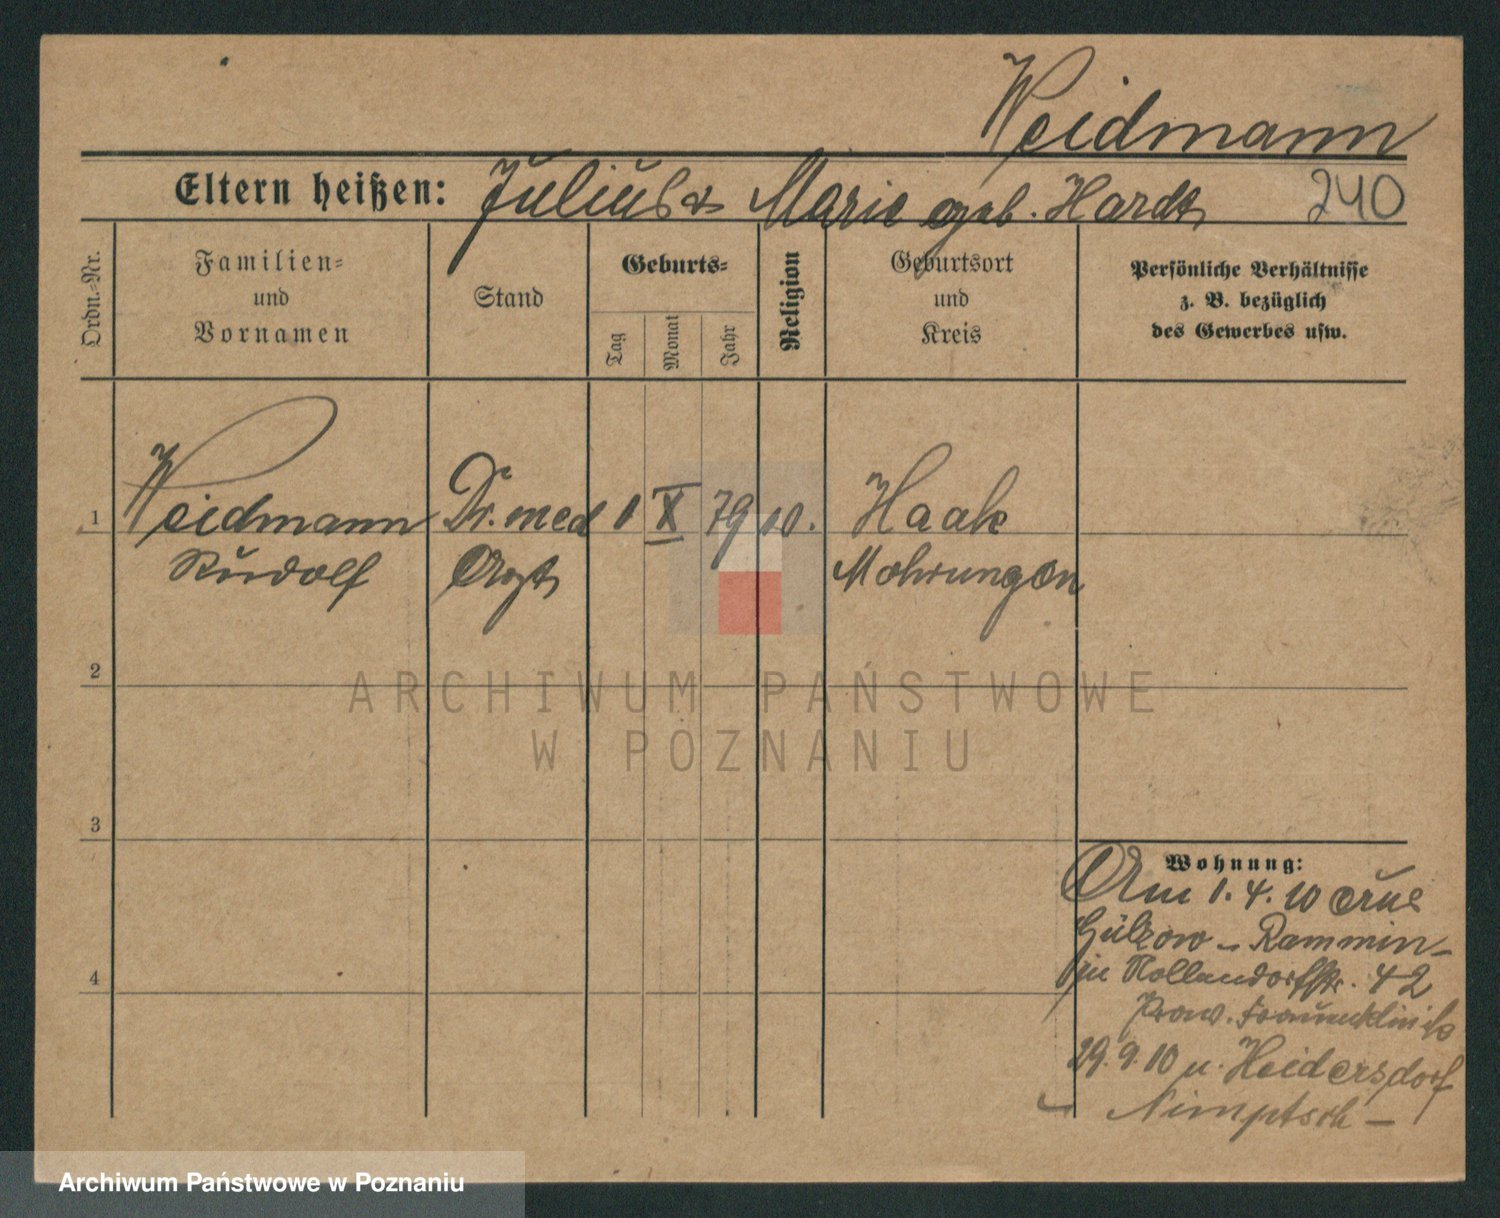 Weidmann
Eltern heißen: Julius & Marie geb. Hardt 240
Ordn.=Nr.
Familien=
und
Vornamen
Stand
Geburts=
Tag
Monat
Jahr
Religion
Geburtsort
und
Kreis
Persönliche Verhältnisse
z. B. bezüglich
des Gewerbes usw.
1 Weidmann Dr. med 1 X 79 Haak
Rudolf Arzt Mohrungen
2
3
4
Wohnung:
Am 1. 4. 10 aus
Gülzow - Rammin -
in Nollendorfstr. 42
Prov. Frauenklinik
29. 9. 10 n. Heidersdorf
- Nimptsch -
ARCHIWUM PAŃSTWOWE
W POZNANIU
Archiwum Państwowe w Poznaniu